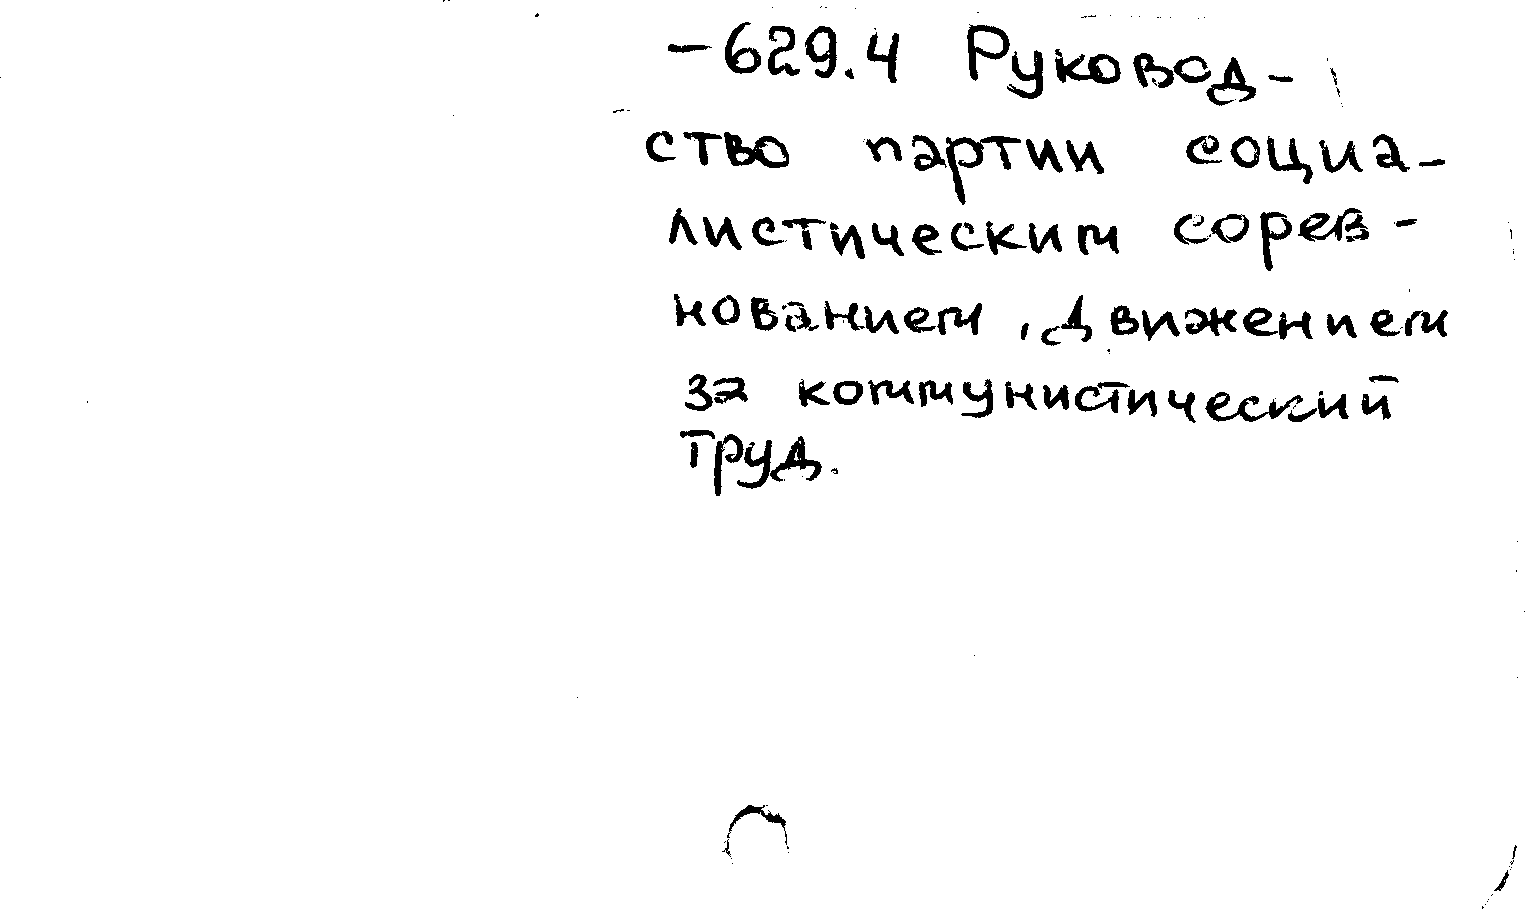 -629.4 Руковод-
ство партии социа-
листическим сорев-
нованием, движением
за коммунистический
труд.